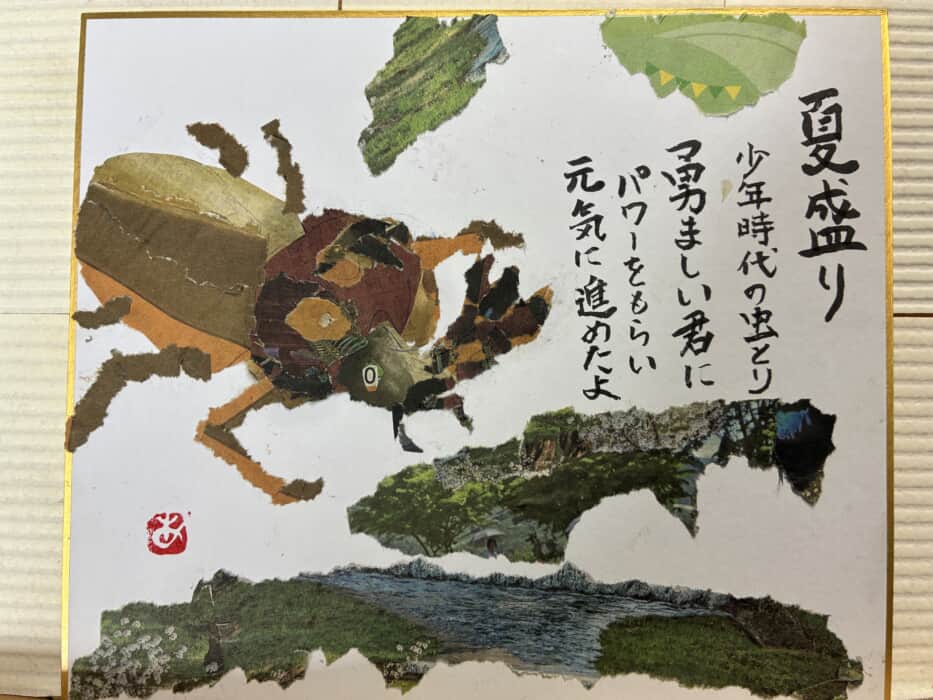 夏盛り
少年時代の虫とり
勇ましい君に
パワーをもらい
元気に進めたよ
あ